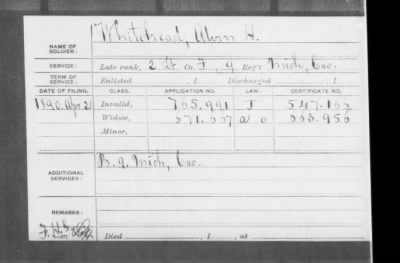 NAME OF SOLDIER: Whitehead, Alvin H.
SERVICE: Late rank, 2 Lt Co. F, 9 Reg't Mich, Cav.
TERM OF SERVICE: Enlisted , 1 Discharged , 1
DATE OF FILING. CLASS. APPLICATION NO. LAW. CERTIFICATE NO.
1890, Apr. 21 Invalid, 765.991 J 547.166
Widow, 671.557 a o 553.956
Minor,
ADDITIONAL SERVICES: B. 9. Mich, Cav.
REMARKS:
Died , 1 , at